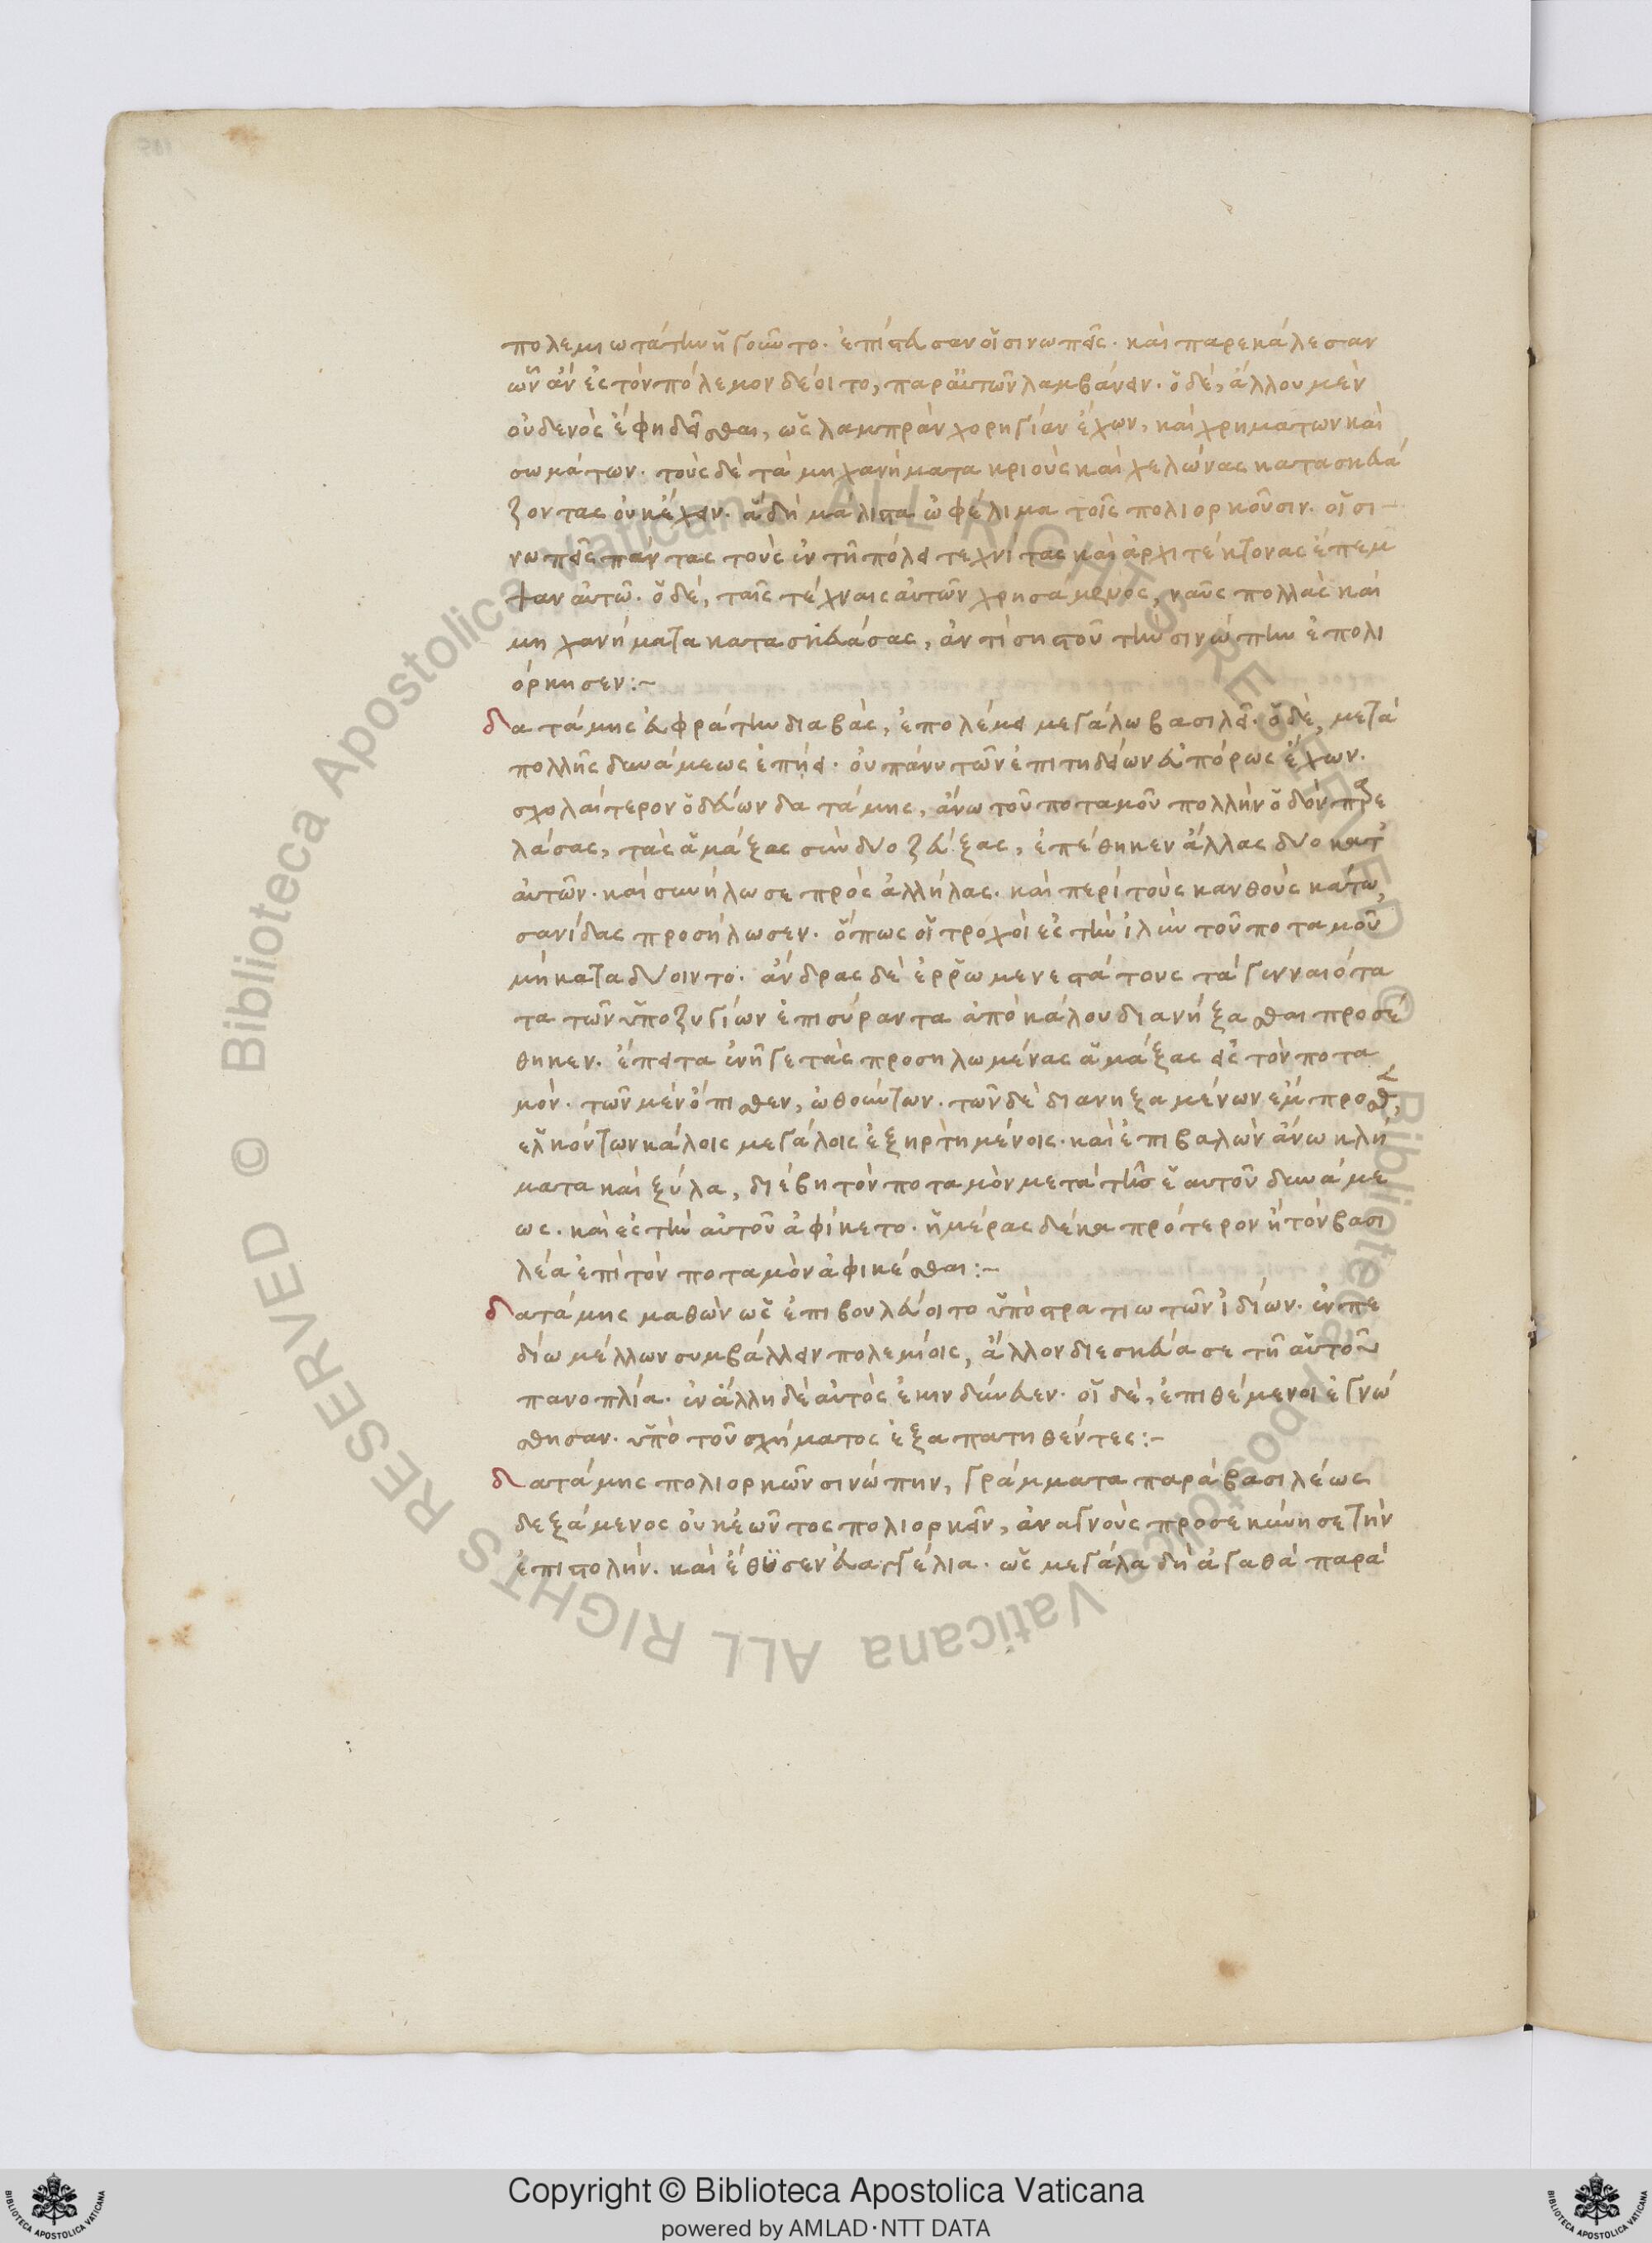 πολεμιωτάτην ἡγοῦντο. ἐπίστευσαν οἱ σινωπεῖς. καὶ παρεκάλεσαν
ὧν ἀν ἐς τὸν πόλεμον δέοιτο, παρ αὐτῶν λαμβάνειν. ὁ δὲ, ἄλλου μὲν
οὐδενὸς ἔφη δεῖσθαι, ὡς λαμπρὰν χορηγίαν ἔχων, καὶ χρημάτων καὶ
σωμάτων. τοὺς δὲ τὰ μηχανήματα κριοὺς καὶ χελώνας κατασκευά
ζοντας οὐκ ἔχειν. ἃ δὴ μάλιστα ὠφέλιμα τοῖς πολιορκοῦσιν. οἱ σι-
νωπεῖς πάντας τοὺς ἐν τῇ πόλει τεχνίτας καὶ ἀρχιτέκτονας ἔπεμ
ψαν αὐτῶ. ὁ δὲ, ταῖς τέχναις αὐτῶν χρησάμενος, ναῦς πολλὰς καὶ
μηχανήματα κατασκευάσας, ἀντὶ σηστοῦ τὴν σινώπην ἐπολι
όρκησεν:~
δατάμης εὐφράτην διαβὰς, ἐπολέμει μεγάλω βασιλεῖ. ὁ δὲ, μετὰ
πολλῆς δυνάμεως ἐπήει. οὐ πάνυ τῶν ἐπιτηδείων εὐπόρως ἔχων.
σχολαίτερον ὁδεύων δατάμης, ἄνω τοῦ ποταμοῦ πολλὴν ὁδὸν προε
λάσας, τὰς ἁμάξας σὺν δυο ζεύξας, ἐπέθηκεν ἄλλας δυο κατ
αὐτῶν. καὶ συνήλωσε πρὸς ἀλλήλας. καὶ περὶ τοὺς κανθοὺς κάτω,
σανίδας προσήλωσεν. ὅπως οἱ τροχοὶ ἐς τὴν ἰλὺν τοῦ ποταμοῦ
μὴ καταδύοιντο. ἄνδρας δὲ ἐρρωμενεστάτους τὰ γενναιότα
τα τῶν ὑποζυγίων ἐπισύραντα ἀπὸ κάλου διανήξασθαι προσέ
θηκεν. ἔπειτα ἐνῆγε τὰς προσηλωμένας ἁμάξας εἰς τὸν ποτα
μόν. τῶν μὲν ὄπισθεν, ὠθούντων. τῶν δὲ διανηξαμένων ἔμπροσθεν,
ἑλκόντων κάλοις μεγάλοις ἐξηρτημένοις. καὶ ἐπιβαλὼν ἄνω κλή
ματα καὶ ξύλα, διέβη τὸν ποταμὸν μετὰ τῆς ἑαυτοῦ δυνάμε
ως. καὶ ἐς τὴν αὐτοῦ ἀφίκετο. ἡμέρας δέκα πρότερον ἢ τὸν βασι
λέα ἐπὶ τὸν ποταμὸν ἀφικέσθαι:~
δατάμης μαθὼν ὡς ἐπιβουλεύοιτο ὑπὸ στρατιωτῶν ἰδίων. ἐν πε
δίω μέλλων συμβάλλειν πολεμίοις, ἄλλον διεσκεύασε τῇ αὑτοῦ
πανοπλία. ἐν ἄλλη δὲ αὐτὸς ἐκινδύνευεν. οἱ δὲ, ἐπιθέμενοι ἐγνώ
σθησαν. ὑπὸ τοῦ σχήματος ἐξαπατηθέντες:~
δατάμης πολιορκῶν σινώπην, γράμματα παρὰ βασιλέως
δεξάμενος οὐκ ἐῶντος πολιορκεῖν, ἀναγνοὺς προσεκύνησε τὴν
ἐπιστολήν. καὶ ἔθυσεν εὐαγγέλια. ὡς μεγάλα δὴ ἀγαθὰ παρὰ
Copyright © Biblioteca Apostolica Vaticana
powered by AMLAD·NTT DATA